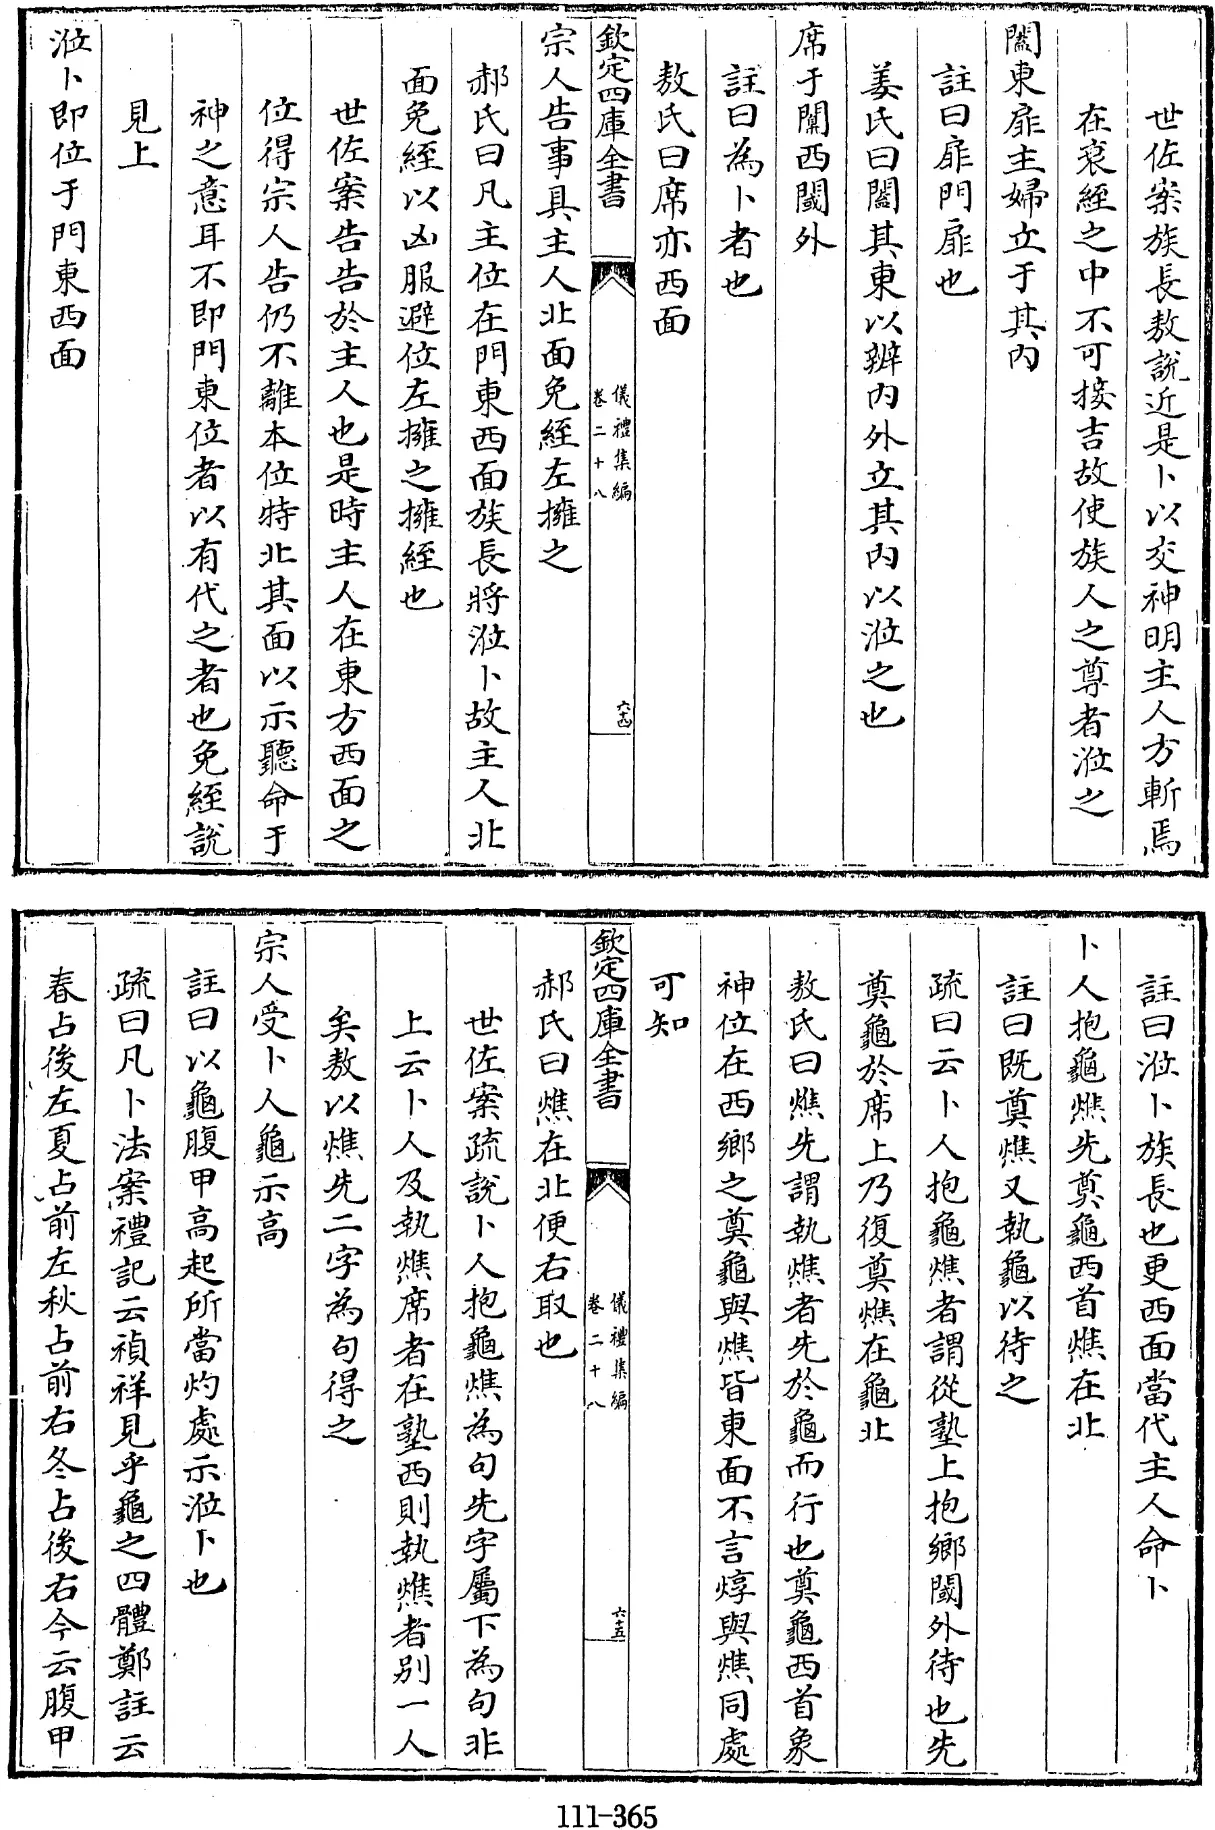 世佐案族長敖說近是卜以交神明主人方斬焉
在衰絰之中不可接吉故使族人之尊者涖之
闔東扉主婦立于其內
註曰扉門扉也
姜氏曰闔其東以辨內外立其內以涖之也
席于闑西閾外
註曰為卜者也
敖氏曰席亦西面
欽定四庫全書
儀禮集編
卷二十八
六十四
宗人告事具主人北面免絰左擁之
郝氏曰凡主位在門東西面族長將涖卜故主人北
面免絰以凶服避位左擁之擁絰也
世佐案告告於主人也是時主人在東方西面之
位得宗人告仍不離本位特北其面以示聽命于
神之意耳不即門東位者以有代之者也免絰說
見上
涖卜即位于門東西面
註曰涖卜族長也更西面當代主人命卜
卜人抱龜燋先奠龜西首燋在北
註曰既奠燋又執龜以待之
疏曰云卜人抱龜燋者謂從塾上抱鄉閾外待也先
奠龜於席上乃復奠燋在龜北
敖氏曰燋先謂執燋者先於龜而行也奠龜西首象
神位在西鄉之奠龜與燋皆東面不言焞與燋同處
可知
欽定四庫全書
儀禮集編
卷二十八
六十五
郝氏曰燋在北便右取也
世佐案疏說卜人抱龜燋為句先字屬下為句非
上云卜人及執燋席者在塾西則執燋者別一人
矣敖以燋先二字為句得之
宗人受卜人龜示高
註曰以龜腹甲高起所當灼處示涖卜也
疏曰凡卜法案禮記云禎祥見乎龜之四體鄭註云
春占後左夏占前左秋占前右冬占後右今云腹甲
111-365